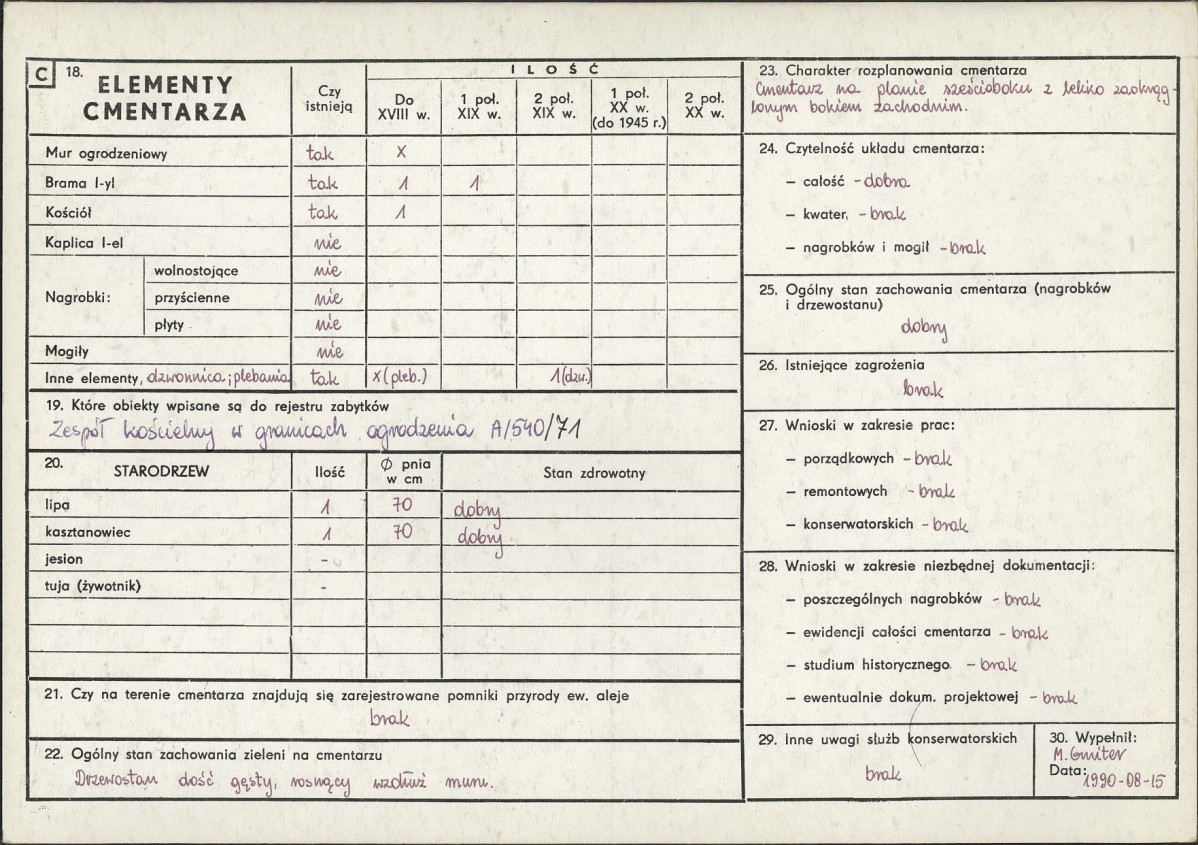 C 18. ELEMENTY CMENTARZA
Czy istnieją
ILOŚĆ
Do XVIII w.
1 poł. XIX w.
2 poł. XIX w.
1 poł. XX w. (do 1945 r.)
2 poł. XX w.
Mur ogrodzeniowy tak X
Brama l-yl tak 1 1
Kościół tak 1
Kaplica l-el nie
Nagrobki:
wolnostojące nie
przyścienne nie
płyty nie
Mogiły nie
Inne elementy, dzwonnica; plebania tak X (pleb.) 1 (dzw.)
19. Które obiekty wpisane są do rejestru zabytków
Zespół kościelny w granicach ogrodzenia A/540/71
20. STARODRZEW Ilość Ø pnia w cm Stan zdrowotny
lipa 1 70 dobry
kasztanowiec 1 70 dobry
jesion -
tuja (żywotnik) -
21. Czy na terenie cmentarza znajdują się zarejestrowane pomniki przyrody ew. aleje
brak
22. Ogólny stan zachowania zieleni na cmentarzu
Drzewostan dość gęsty, rosnący wzdłuż muru.
23. Charakter rozplanowania cmentarza
Cmentarz na planie sześcioboku z lekko zaokrąg-
lonym bokiem zachodnim.
24. Czytelność układu cmentarza:
– całość - dobra
– kwater, - brak
– nagrobków i mogił - brak
25. Ogólny stan zachowania cmentarza (nagrobków
i drzewostanu)
dobry
26. Istniejące zagrożenia
brak
27. Wnioski w zakresie prac:
– porządkowych - brak
– remontowych - brak
– konserwatorskich - brak
28. Wnioski w zakresie niezbędnej dokumentacji:
– poszczególnych nagrobków - brak
– ewidencji całości cmentarza - brak
– studium historycznego. - brak
– ewentualnie dokum. projektowej - brak
29. Inne uwagi służb konserwatorskich
brak
30. Wypełnił:
M. Gmiter
Data: 1990-08-15